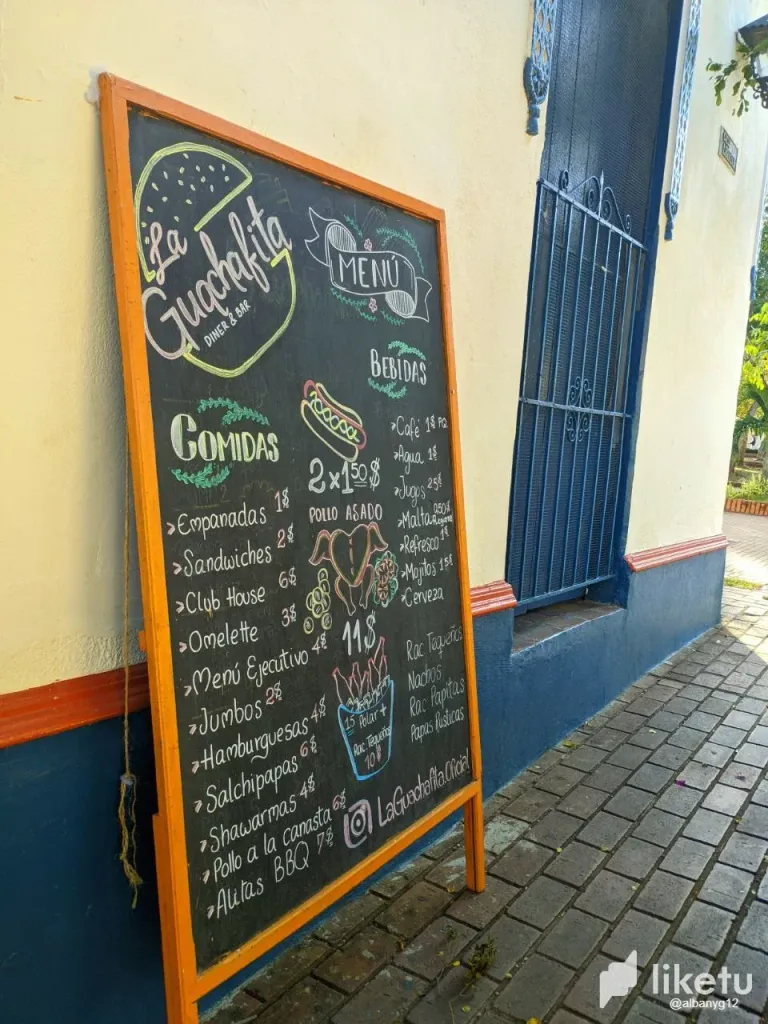 La
Guachafita
DINER & BAR
MENÚ
COMIDAS
>Empanadas 1$
>Sandwiches 2$
>Club House 6$
>Omelette 3$
>Menú Ejecutivo 4$
>Jumbos 2$
>Hamburguesas 4$
>Salchipapas 6$
>Shawarmas 4$
>Pollo a la canasta 6$
>Alitas BBQ 7$
2x1⁵⁰$
POLLO ASADO
11$
15 Polar +
Rac Tequeños
10$
BEBIDAS
>Café 1$ PQ
>Agua 1$
>Jugos
>Malta
>Refresco 1$
>Mojitos
>Cerveza
Rac Tequeños
Nachos
Rac Papitas
Papas Rusticas
LaGuachafita.Oficial
liketu
@albanyg12